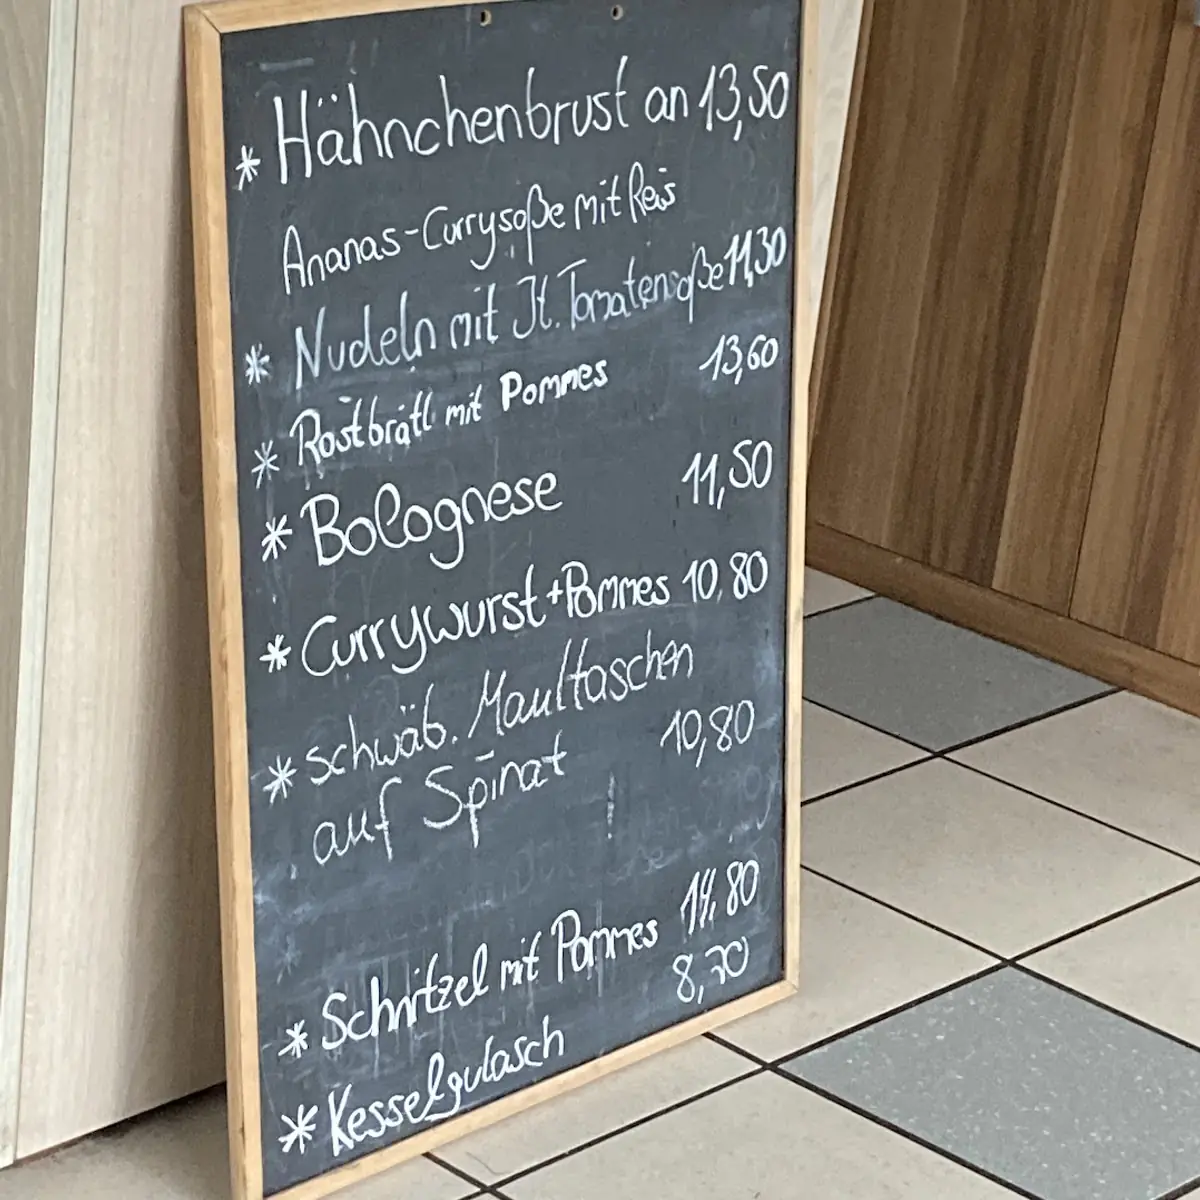 * Hähnchenbrust an 13,50
Ananas-Currysoße mit Reis
* Nudeln mit It. Tomatensoße 11,30
* Rostbrätl mit Pommes 13,60
* Bolognese 11,50
* Currywurst + Pommes 10,80
* schwäb. Maultaschen
auf Spinat 10,80
* Schnitzel mit Pommes 14,80
* Kesselgulasch 8,70